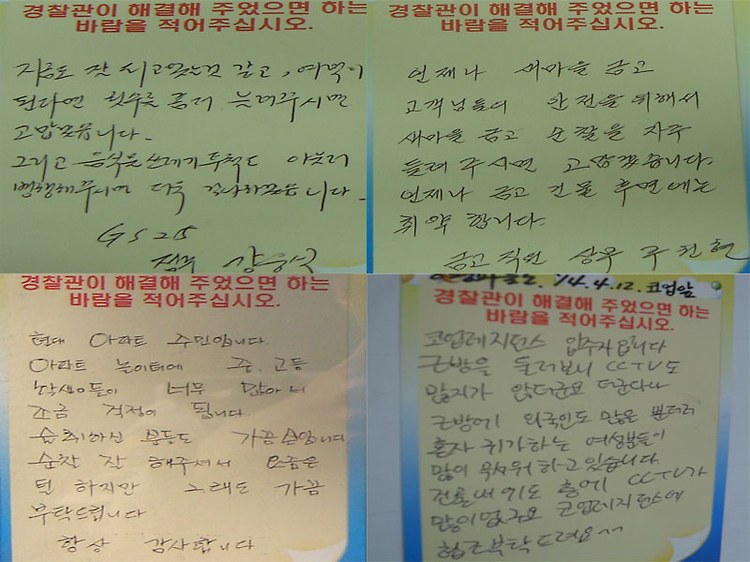 경찰관이 해결해 주었으면 하는
바람을 적어주십시오.
지금도 잘 시고있는것 같고, 여력이
된다면 횟수를 좀더 늘려주시면
고맙겠습니다.
그리고 음식물쓰레기투척도 아울러
병행해주시면 더욱 감사하겠습니다.
GS25
점주
경찰관이 해결해 주었으면 하는
바람을 적어주십시오.
언제나 새마을 금고
고객님들의 안전을 위해서
새마을 금고 순찰을 자주
들려 주시면 고맙겠습니다.
언제나 금고 건물 후면에는
취약 합니다.
금고직원 상무
경찰관이 해결해 주었으면 하는
바람을 적어주십시오.
현대 아파트 주민입니다.
아파트 놀이터에 중.고등
학생이들이 너무 많아서
조금 걱정이 됩니다.
술취하신 분들도 가끔 보입니다
순찰 잘 해주셔서 요즘은
덜 하지만 그래도 가끔
부탁드립니다
항상 감사합니다
'14.4.12. 코업앞
경찰관이 해결해 주었으면 하는
바람을 적어주십시오.
코업레지던스 입주자입니다
근방을 둘러보니 CCTV도
많지가 않더군요 더군다나
근방에 외국인도 많은 뿐더러
혼자 귀가하는 여성분들이
많이 무서워 하고 있습니다.
건물내 에도 층에 CCTV가
많이없구요 코업레지던스에
협조부탁드려요~~